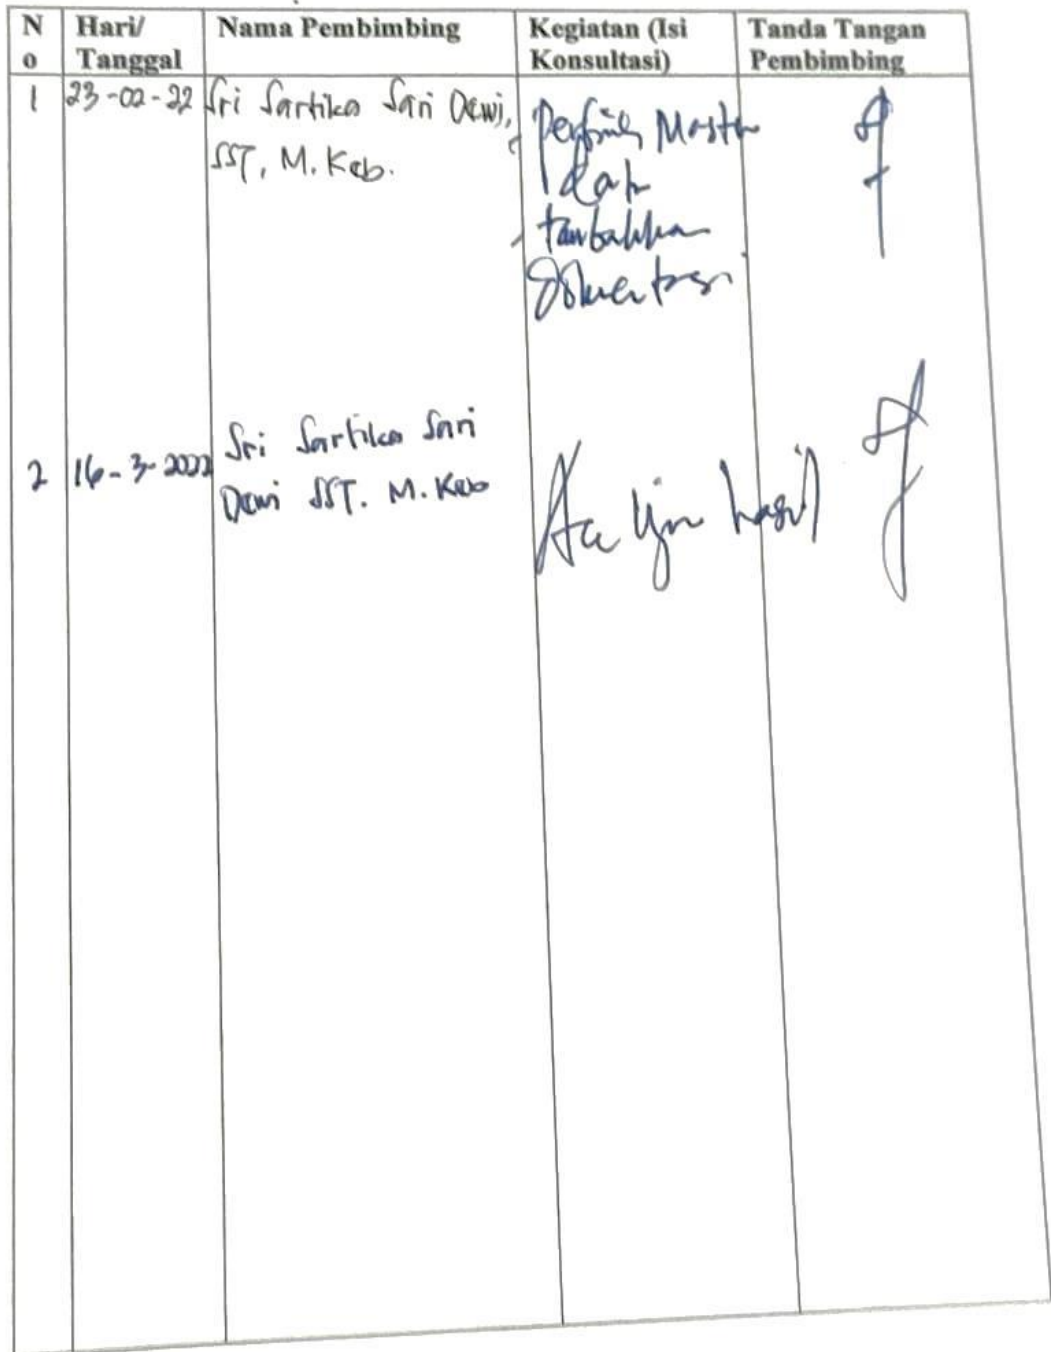 No
Hari/
Tanggal
Nama Pembimbing
Kegiatan (Isi
Konsultasi)
Tanda Tangan
Pembimbing
1
23-02-22
Sri Sartika Sari Dewi,
SST, M.Keb.
Master
tambahkan
Dokumentasi
2
16-3-2022
Sri Sartika Sari
Dewi SST. M.Keb
Acc Ujin hasil